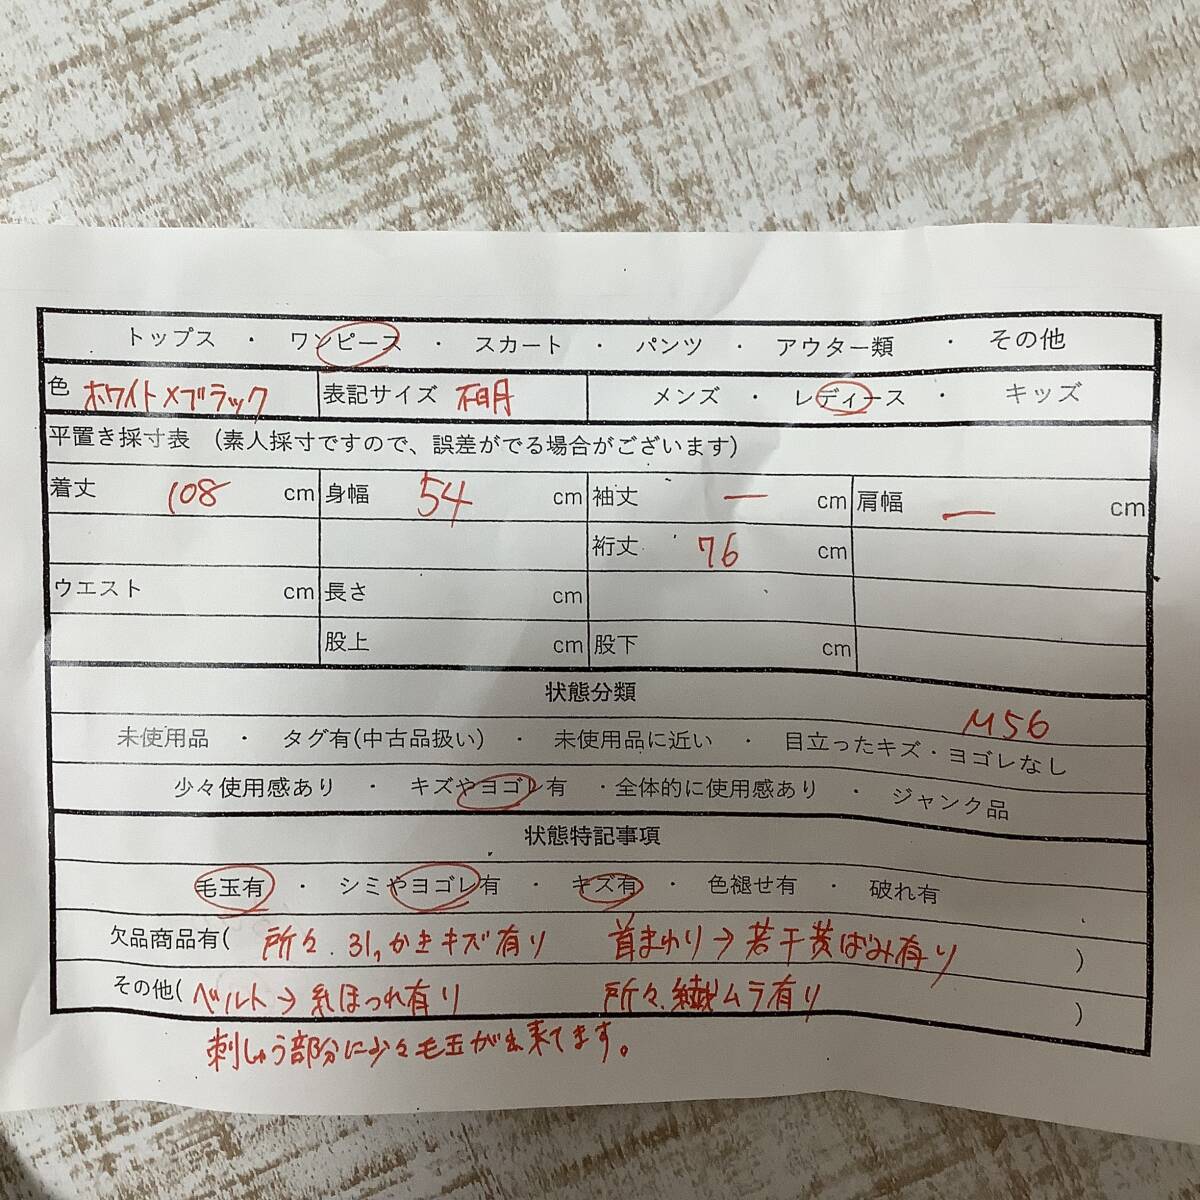 トップス ・ ワンピース ・ スカート ・ パンツ ・ アウター類 ・ その他
色 ホワイト×ブラック 表記サイズ 不明 メンズ ・ レディース ・ キッズ
平置き採寸表 （素人採寸ですので、誤差がでる場合がございます）
着丈 108 cm 身幅 54 cm 袖丈 ー cm 肩幅 ー cm
裄丈 76 cm
ウエスト cm 長さ cm
股上 cm 股下 cm
状態分類
M56
未使用品 ・ タグ有(中古品扱い) ・ 未使用品に近い ・ 目立ったキズ・ヨゴレなし
少々使用感あり ・ キズやヨゴレ有 ・全体的に使用感あり ・ ジャンク品
状態特記事項
毛玉有 ・ シミやヨゴレ有 ・ キズ有 ・ 色褪せ有 ・ 破れ有
欠品商品有( 所々、引っかきキズ有り 首まわり→若干黄ばみ有り )
その他( ベルト→糸ほつれ有り 所々、繊ムラ有り )
刺しゅう部分に少々毛玉が出来てます。